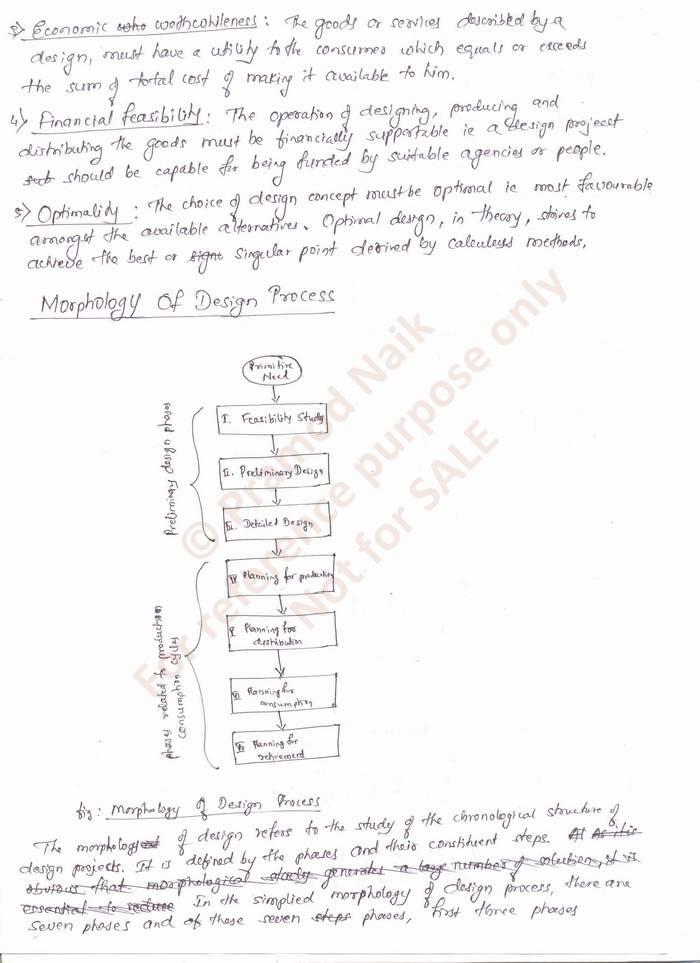 3) Economic who worthcohileness : The goods or services described by a
design, must have a utility to the consumer which equals or exceeds
the sum of total cost of making it available to him.
4) Financial feasibility : The operation of designing, producing and
distributing the goods must be financially supportable ie a design project
sub should be capable for being funded by suitable agencies or people.
5) Optimality : The choice of design concept must be optimal ie most favourable
amongst the available alternatives. Optimal design, in theory, strives to
achieve the best or signt singular point derived by calculeus methods.
Morphology Of Design Process
Primitive
Need
Preliminary design phases
I. Feasibility Study
II. Preliminary Design
III. Detailed Design
phases related to production
consumption cycles
IV Planning for production
V Planning for
distribution
VI Planning for
consumption
VII Planning for
retirement
fig: Morphology of Design Process
The morphology of design refers to the study of the chronological structure of
design projects. It is defined by the phases and their constituent steps. At As it is
obvious that morphological study generates a large number of solution, it is
essential to reduce In the simplied morphology of design process, there are
seven phases and of those seven steps phases, first three phases
© Pramod Naik
For reference purpose only
Not for SALE